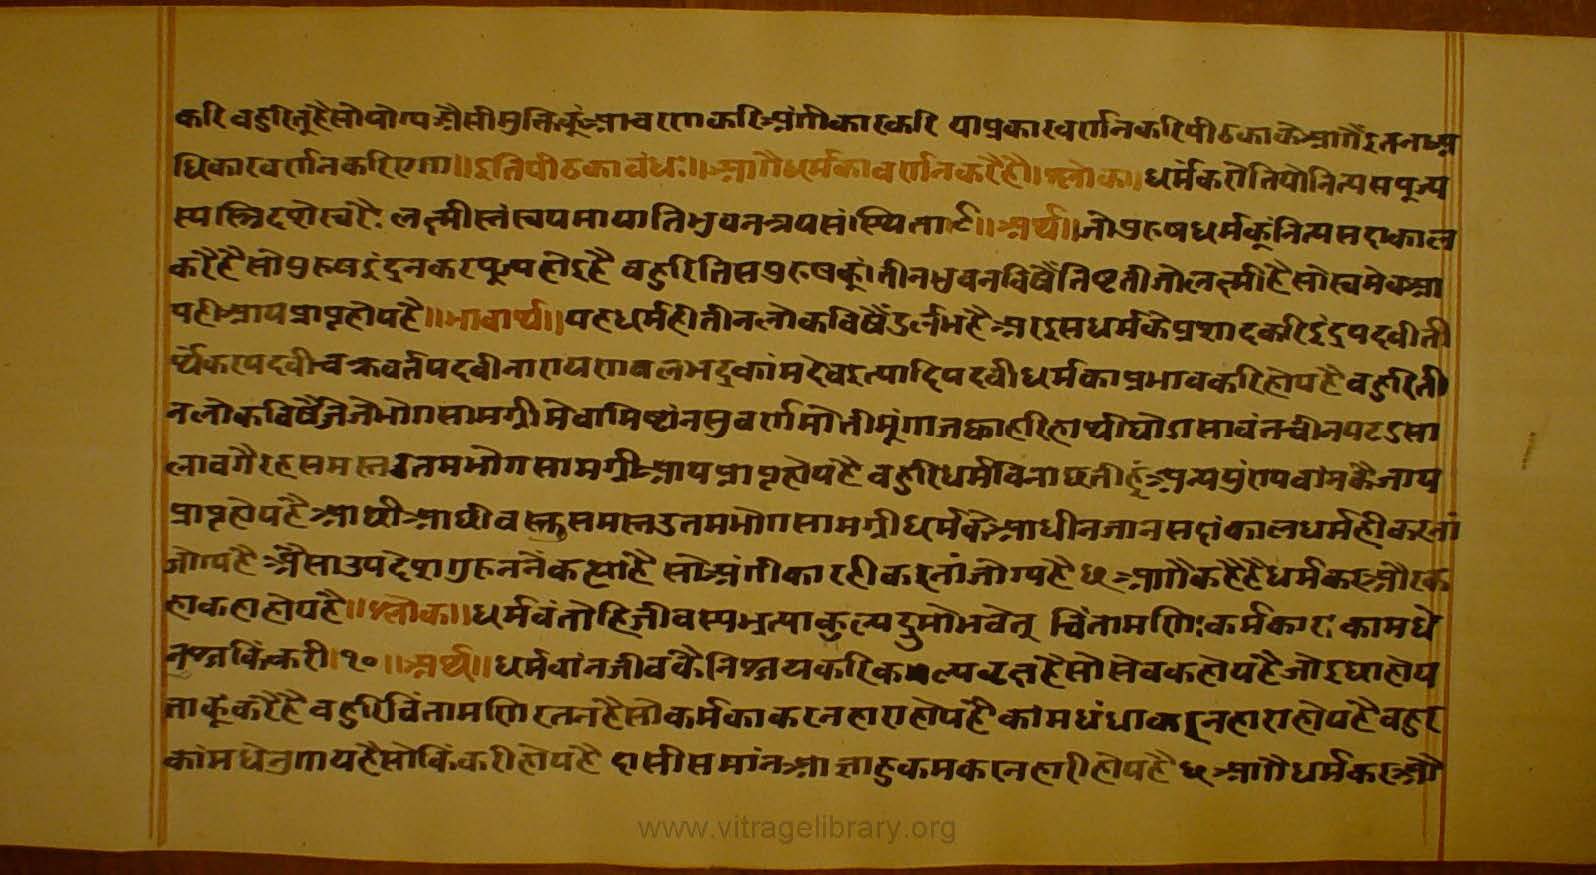 करि बहुरि तूं है सो योग्य अैसी मुनि कूं आचरण करि अंगीकार करि या प्रकार वर्णन करि पीठका के आगैं इतना अ
धिकार वर्णन करिएगा॥ इति पीठका बंधः॥ आगै धर्म का वर्णन करै है॥ श्लोक॥ धर्म करोति यो नित्य स पूज्य
स्य त्रिदशेस्वरैः लक्ष्मीस्तं स्वयमायाति भुवनत्रय संस्थिता ९॥ अर्थ॥ जो पुरुष धर्म कूं नित्य सदाकाल
करै है सो पुरुष इंद्रन कर पूज्य होइ है बहुरि तिस पुरुष कूं तीन भुवन विषैं तिष्टती जो लक्ष्मी है सो स्वमेव आ
य ही आय प्राप्त होय है॥ भावार्थ॥ यह धर्म ही तीन लोक विषैं दुर्लभ है अर इस धर्म के प्रशाद करि इंद्र पदवी ती
र्थंकर पदवी चक्रवर्त पदवी नारायण बलभद्र कांमदेव इत्यादि पदवी धर्म का प्रभाव करि होय है बहुरि ती
न लोक विषैं जे जे भोग सामग्री मेवा मिष्टांन सुवर्ण मोती मूंगा हाथी घोडा सावंत चीनपट दुसा
ला वगैरह समस्त उतम भोग सामग्री आय प्राप्त होय है बहुरि धर्म विना छती हूं अन्य पुंण्यवांम कै जाय
प्राप्त होय है आछी आछी वस्तु समस्त उतम भोग सामग्री धर्म कै आधीन जान सदां काल धर्म ही करनां
जोग्य है अैसा उपदेश गुरुन नैं कह्या है सो अंगीकार ही करनां जोग्य है ९ आगै कहै है धर्म कर और क
हा कहा होय है॥ श्लोक॥ धर्मवंतो हि जीवस्य भृत्या कल्पद्रुमो भवेत् चिंतामणिः कर्मकारः कामधे
नुश्च किंकरी॥ १०॥ अर्थ॥ धर्मवांन जीव कै निश्चय करि कल्पवृक्ष है सो सेवक होय है जो इछा होय
ता कूं करै है बहुरि चिंतामणि रतन है सो कर्म का करनहारा होय है कांम धंधा करनहारा होय है बहुर
कांमधेनु गाय है सो किंकरी होय है दासी समांन आज्ञा हुकम करनहारी होय है ९ आगै धर्म कर औ
www.vitragelibrary.org